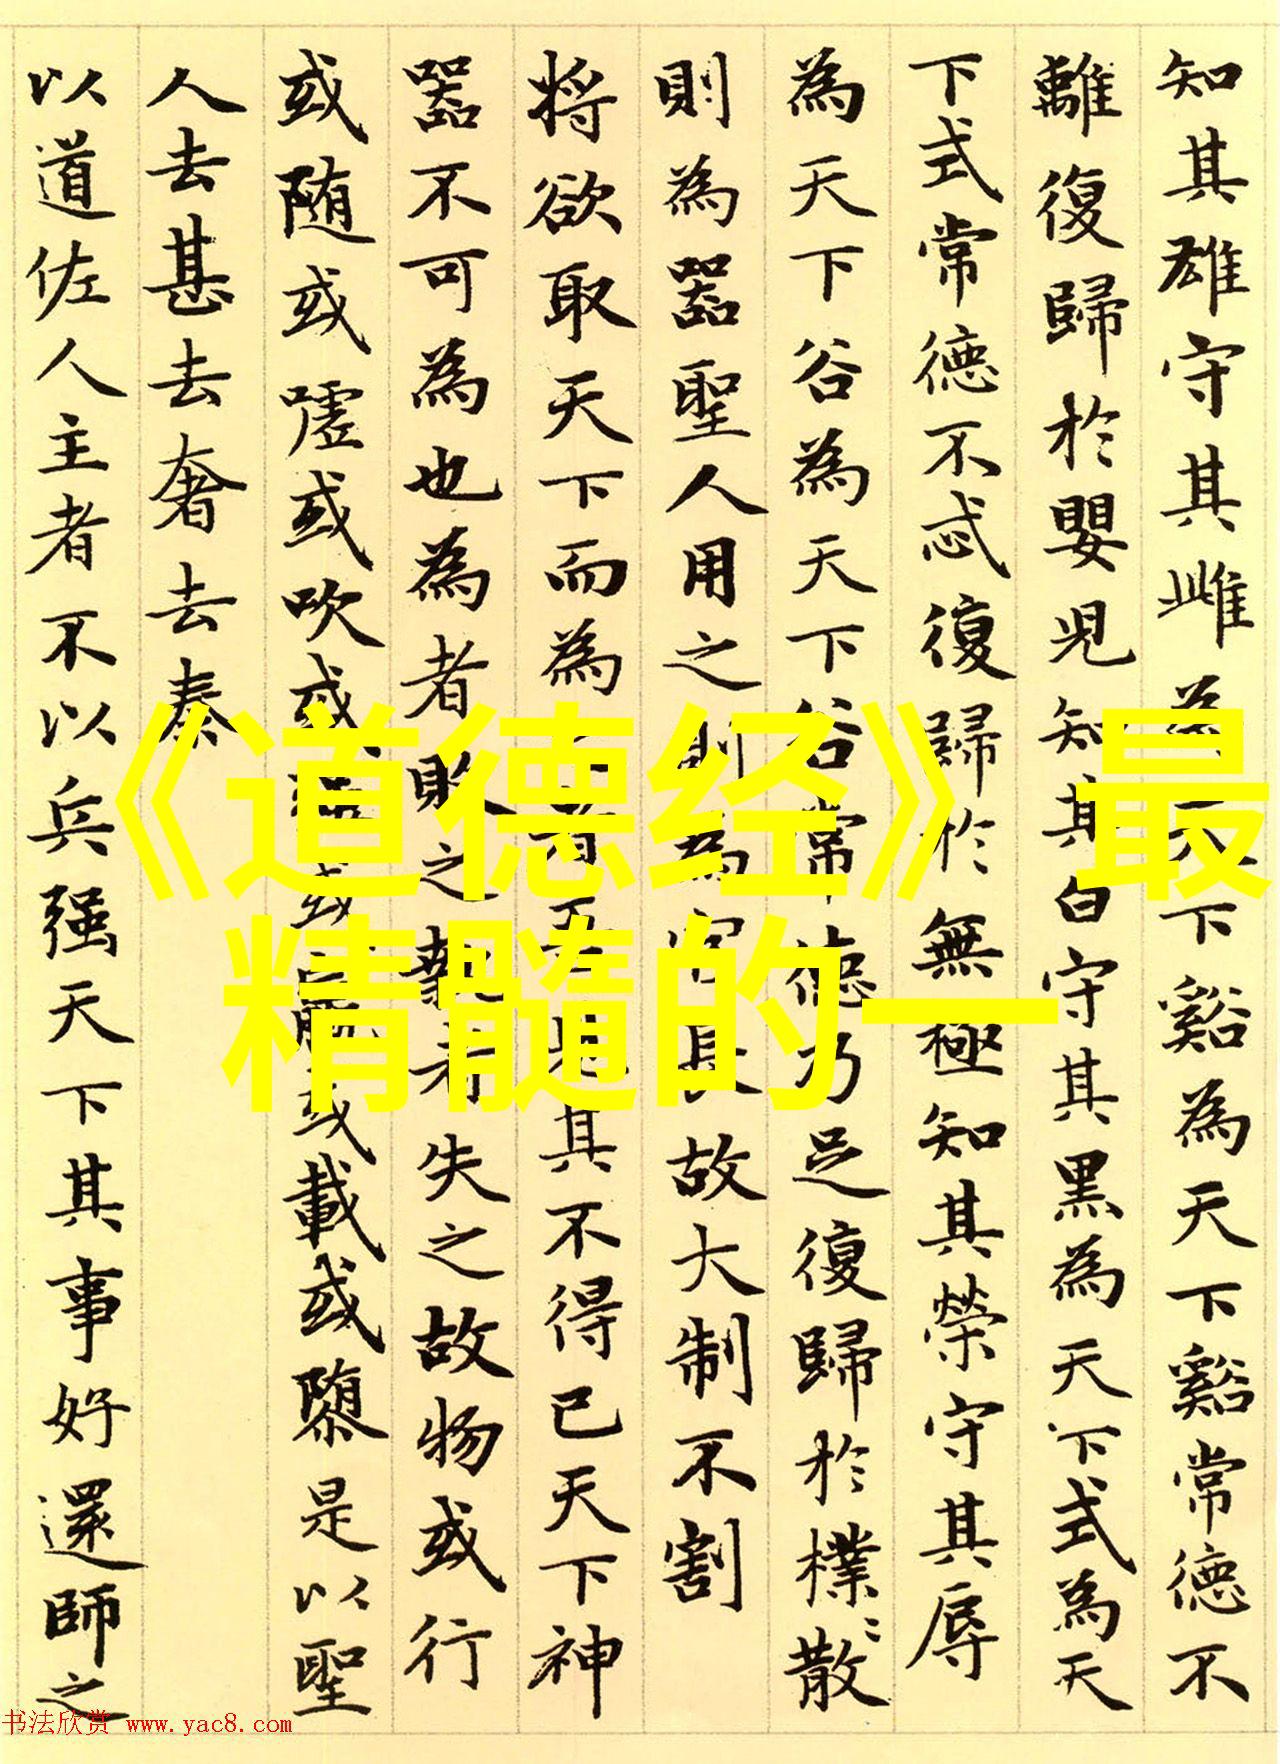 知其雄守其雌為天下谿為天下谿常德不
離復歸於嬰児知其白守其黒為天下式為天
下式常德不忒復歸於無極知其榮守其辱
為天下谷為天下谷常德乃足復歸於樸〻散
則為器聖人用之則為官長故大制不割
将欲取天下而為者吾其不得已天下神
器不可為也為者敗之執者失之故物或行
或随或嘘或吹或或或載或隳是以聖
人去甚去奢去泰
以道佐人主者不以兵强天下其事好還師之
《道德经》最
精髓的一
书法欣赏 www.yac8.com